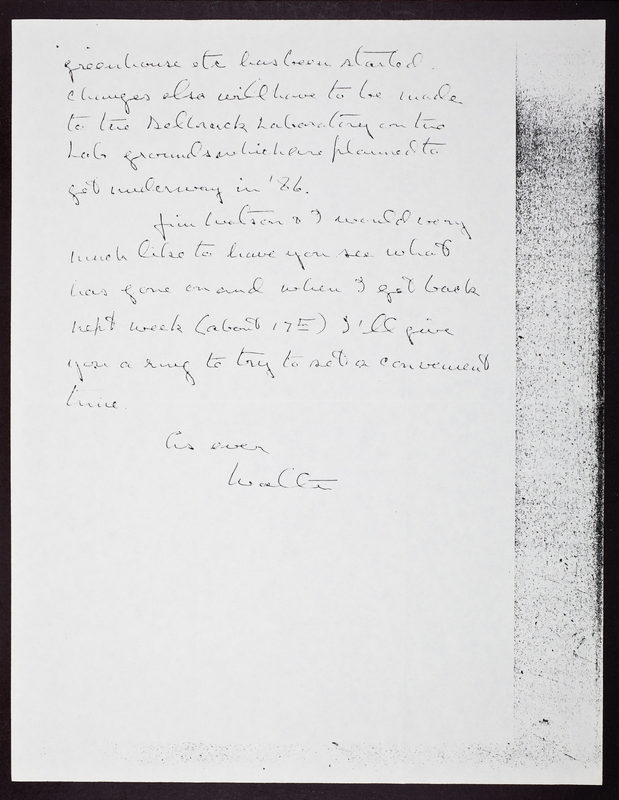 greenhouse etc has been started.
Changes also will have to be made
to the Delbruck Laboratory on the
Lab grounds which are planned to
get underway in '86.
Jim Watson & I would very
much like to have you see what
has gone on and when I get back
next week (about 17th) I'll give
you a ring to try to set a convenient
time.
As ever
Walter